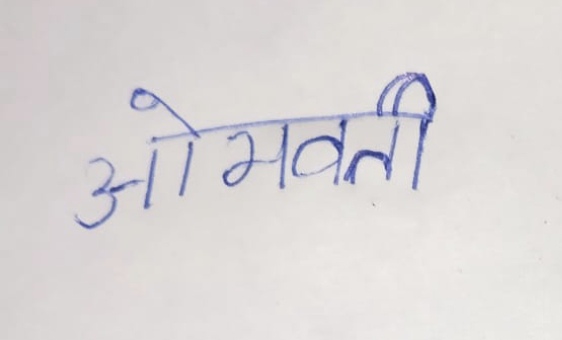 ओमवती